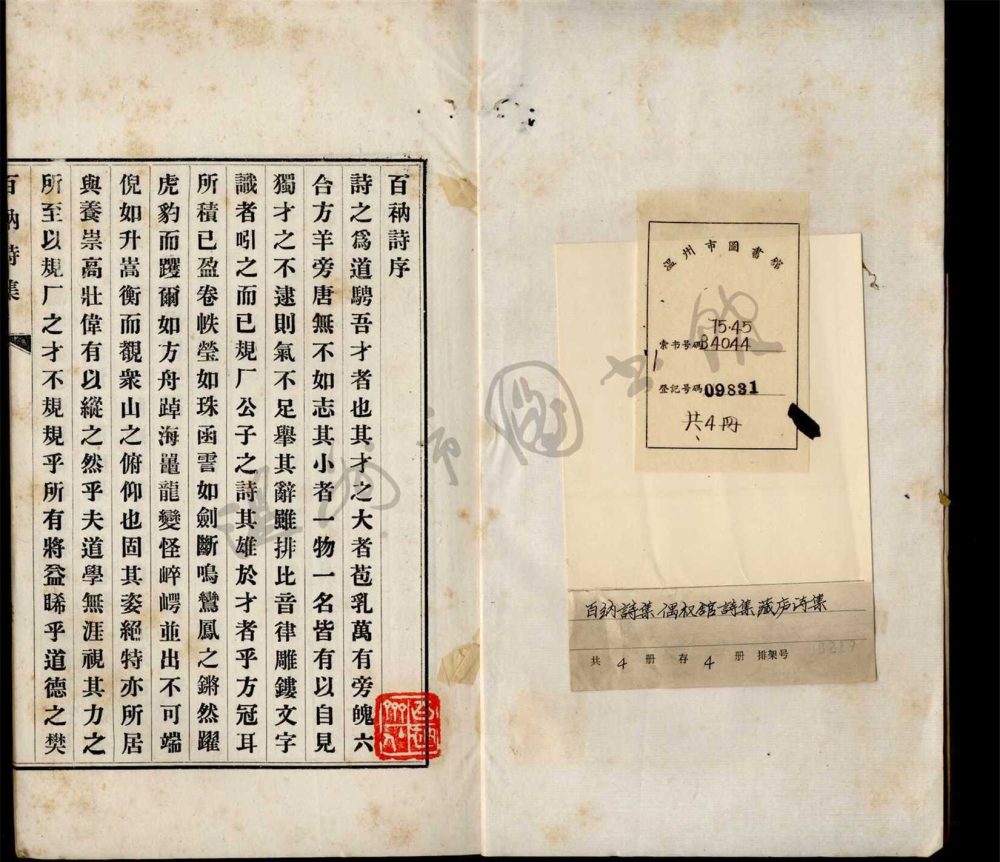 百衲詩序
詩之爲道騁吾才者也其才之大者苞乳萬有旁魄六
合方羊旁唐無不如志其小者一物一名皆有以自見
獨才之不逮則氣不足舉其辭雖排比音律雕鏤文字
識者吲之而已規厂公子之詩其雄於才者乎方冠耳
所積已盈卷帙瑩如珠函雲如劍斷鳴鸞鳳之鏘然躍
虎豹而躩爾如方舟踔海鼉龍變怪崪崿並出不可端
倪如升嵩衡而觀衆山之俯仰也固其姿絕特亦所居
與養崇高壯偉有以縱之然乎夫道學無涯視其力之
所至以規厂之才不規規乎所有將益睎乎道德之樊
百衲詩集
温州市圖書館
索书号碼
75.45
B4044
登記号碼 09831
共4册
温州市圖书館
百衲詩集 偶权館詩集 藏庐诗集
共 4 册 存 4 册 排架号